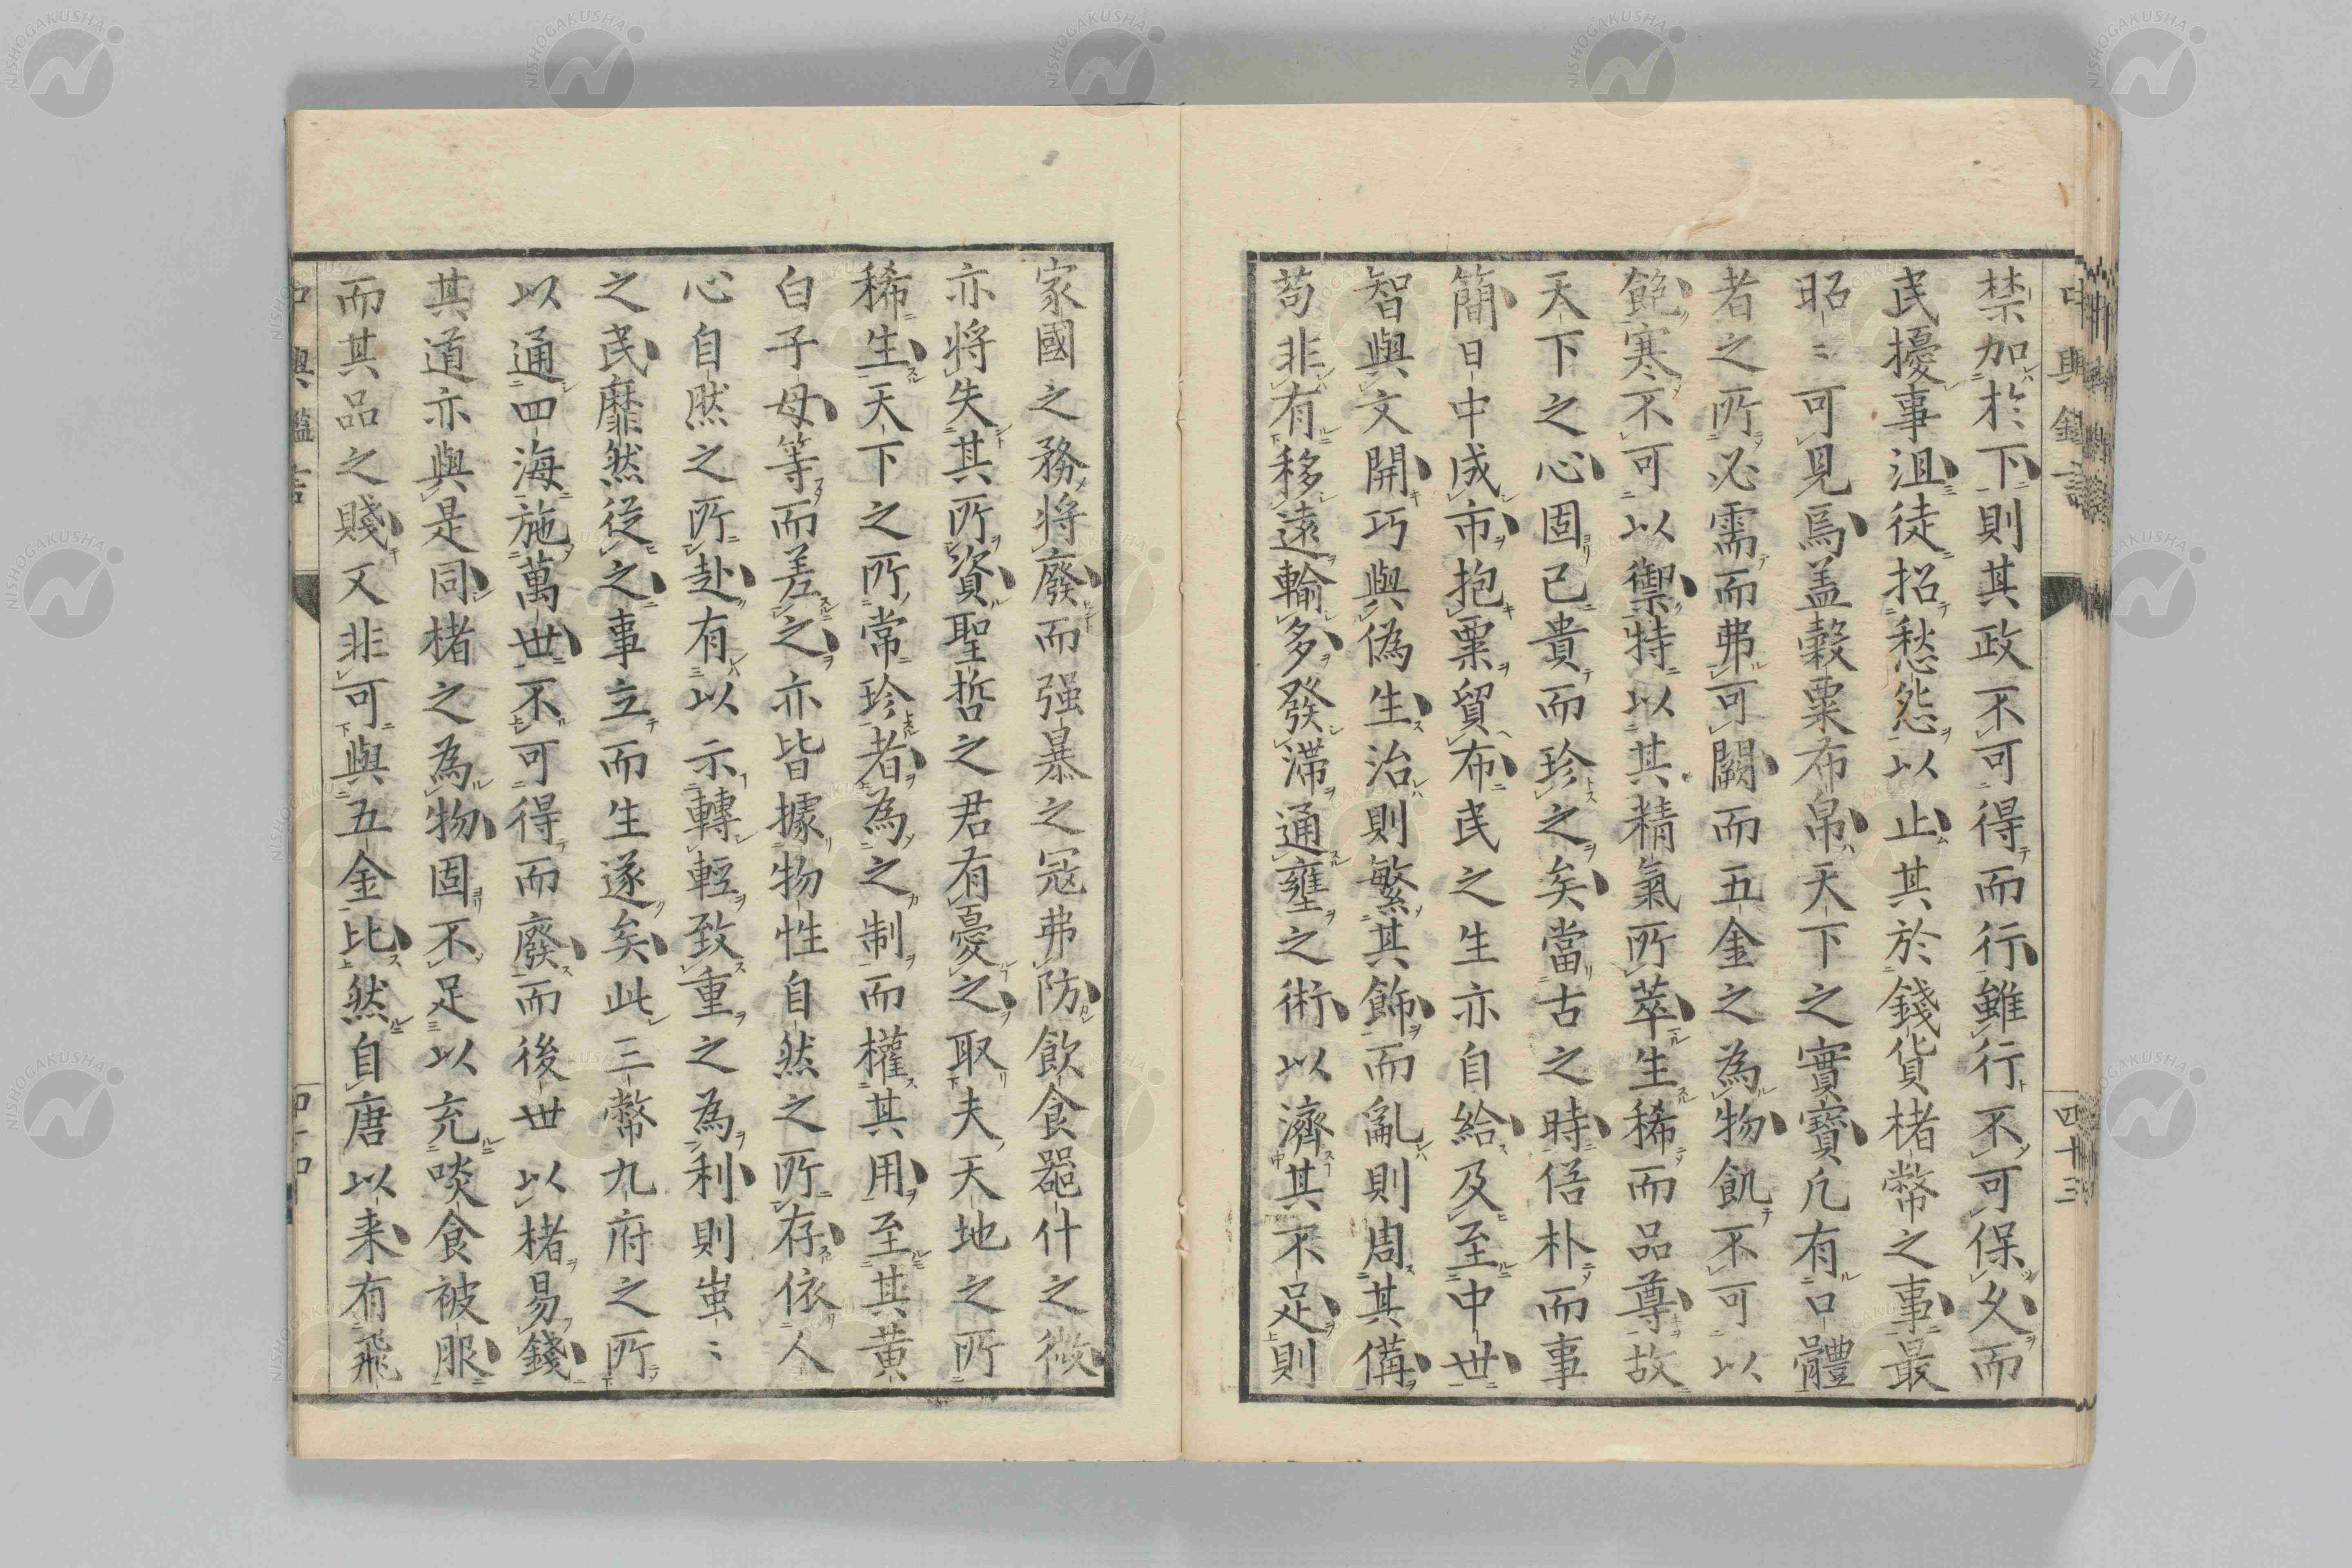 禁加於下則其政不可得而行雖行不可保久而
民擾事沮徒招愁怨以止其於錢貨楮幣之事最
昭〻可見焉盖穀粟布帛天下之實寶凡有口體
者之所必需而弗可闕而五金之為物飢不可以
飽寒不可以禦特以其精氣所萃生稀而品尊故
天下之心固已貴而珍之矣當古之時俗朴而事
簡日中成市抱粟貿布民之生亦自給及至中世
智與文開巧與偽生治則繁其飾而亂則周其備
苟非有移遠輸多發滯通壅之術以濟其不足則
家國之務將廢而强暴之冦弗防飲食器什之微
亦將失其所資聖哲之君有憂之取夫天地之所
稀生天下之所常珍者為之制而權其用至其黄
白子母等而差之亦皆據物性自然之所存依人
心自然之所赴有以示轉輕致重之為利則蚩〻
之民靡然從之事立而生遂矣此三幣九府之所
以通四海施萬世不可得而廢而後世以楮易錢
其道亦與是同楮之為物固不足以充啖食被服
而其品之賤又非可與五金比然自唐以来有飛
四十三
NISHOGAKUSHA